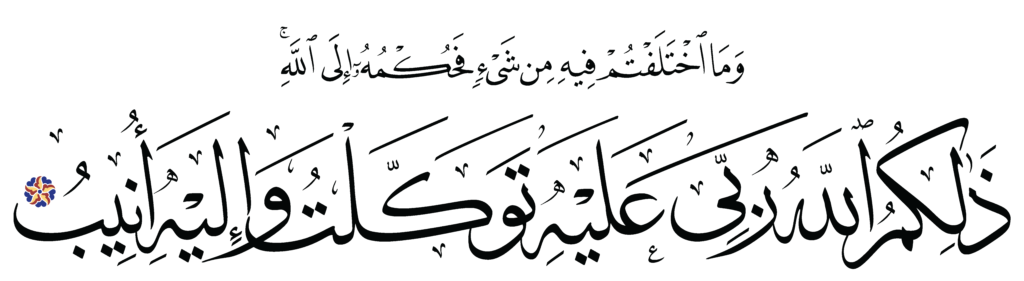 وَمَا ٱخْتَلَفْتُمْ فِيهِ مِن شَىْءٍ فَحُكْمُهُۥٓ إِلَى ٱللَّهِ ۚ
ذَٰلِكُمُ ٱللَّهُ رَبِّى عَلَيْهِ تَوَكَّلْتُ وَإِلَيْهِ أُنِيبُ